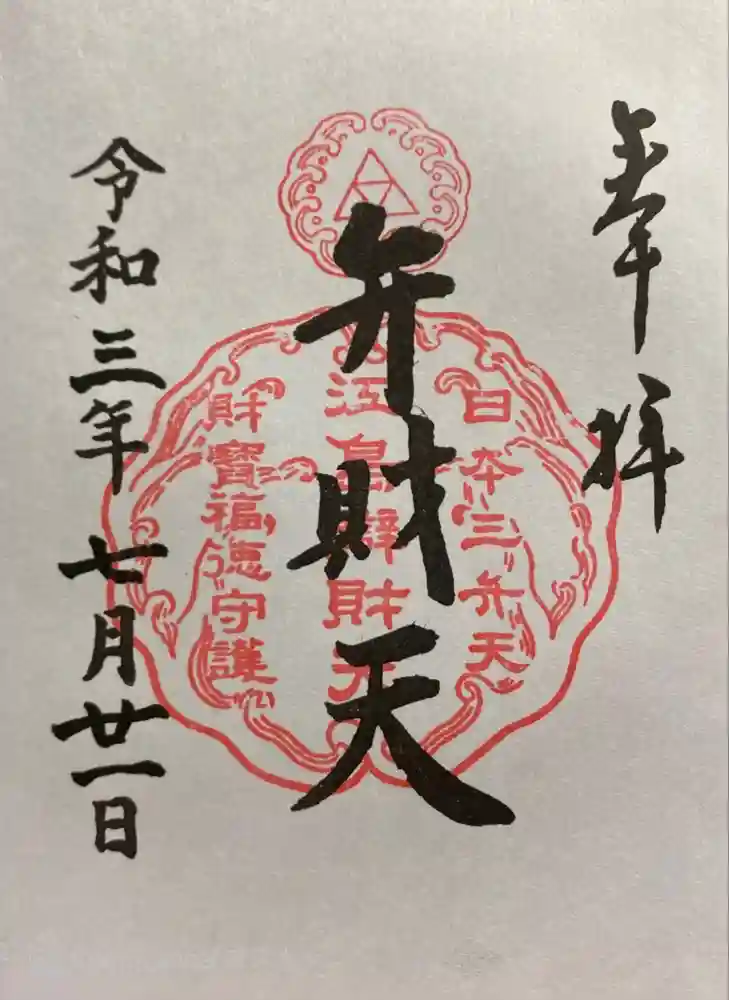 奉拝
弁財天
日本三弁天
江島辨財天
財寶福徳守護
令和三年七月廿一日